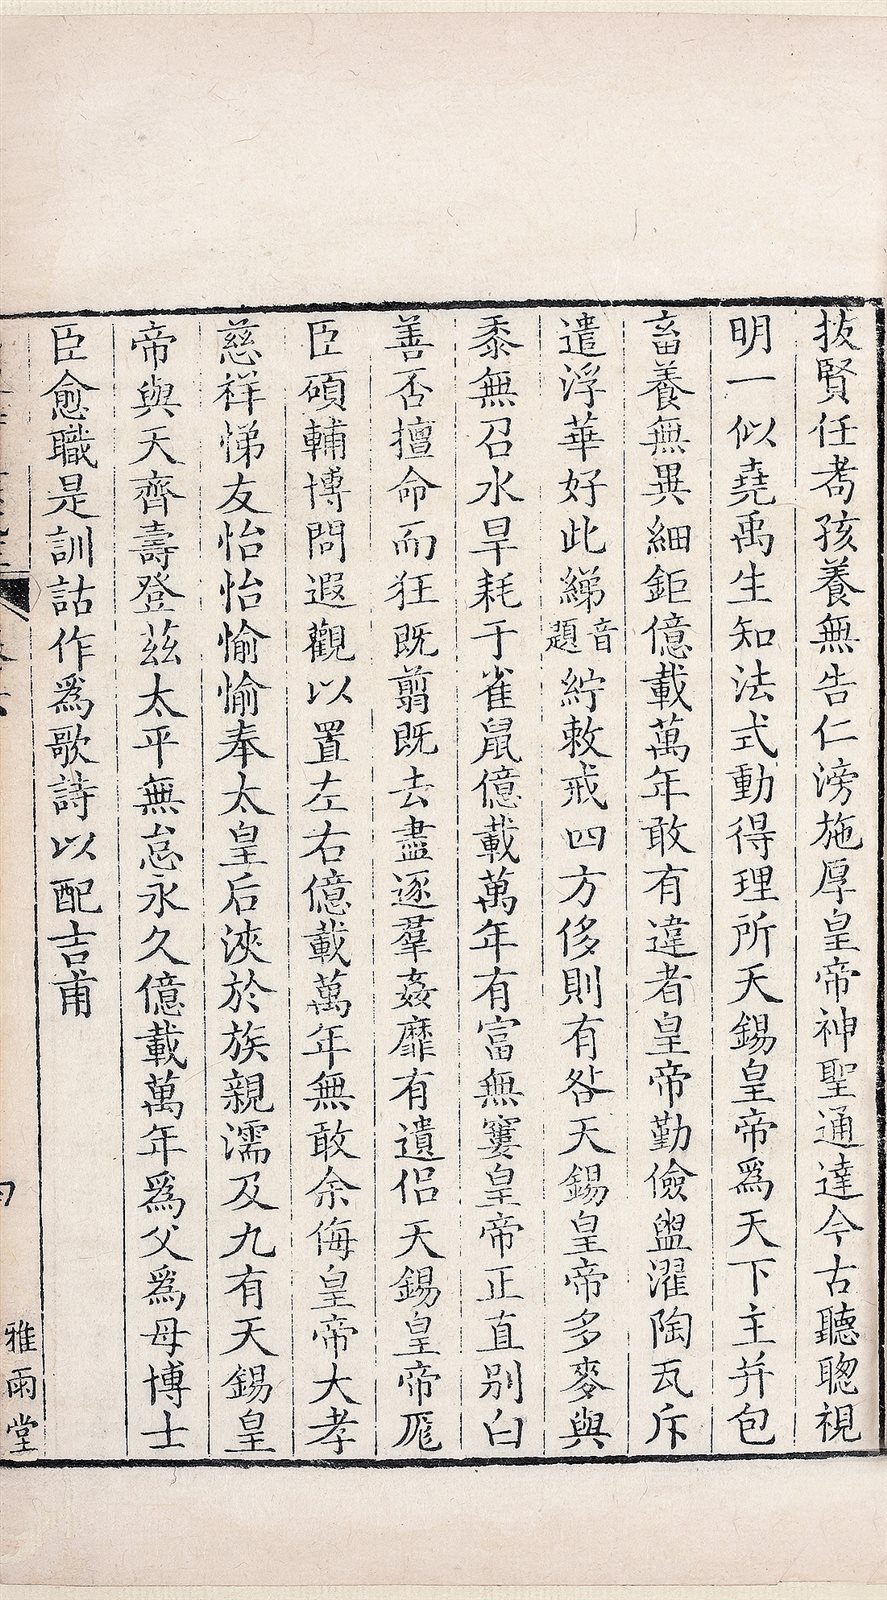 拔賢任耉孩養無告仁滂施厚皇帝神聖通達今古聽聦視
明一似堯禹生知法式動得理所天錫皇帝爲天下主并包
畜養無異細鉅億載萬年敢有違者皇帝勤儉盥濯陶瓦斥
遣浮華好此綈音題紵敕戒四方侈則有咎天錫皇帝多麥與
黍無召水旱耗于雀鼠億載萬年有富無窶皇帝正直別白
善否擅命而狂既翦既去盡逐羣姦靡有遺侣天錫皇帝厖
臣碩輔博問遐觀以置左右億載萬年無敢余侮皇帝大孝
慈祥悌友怡怡愉愉奉太皇后浹於族親濡及九有天錫皇
帝與天齊壽登茲太平無怠永久億載萬年爲父爲母博士
臣愈職是訓詁作爲歌詩以配吉甫
雅雨堂